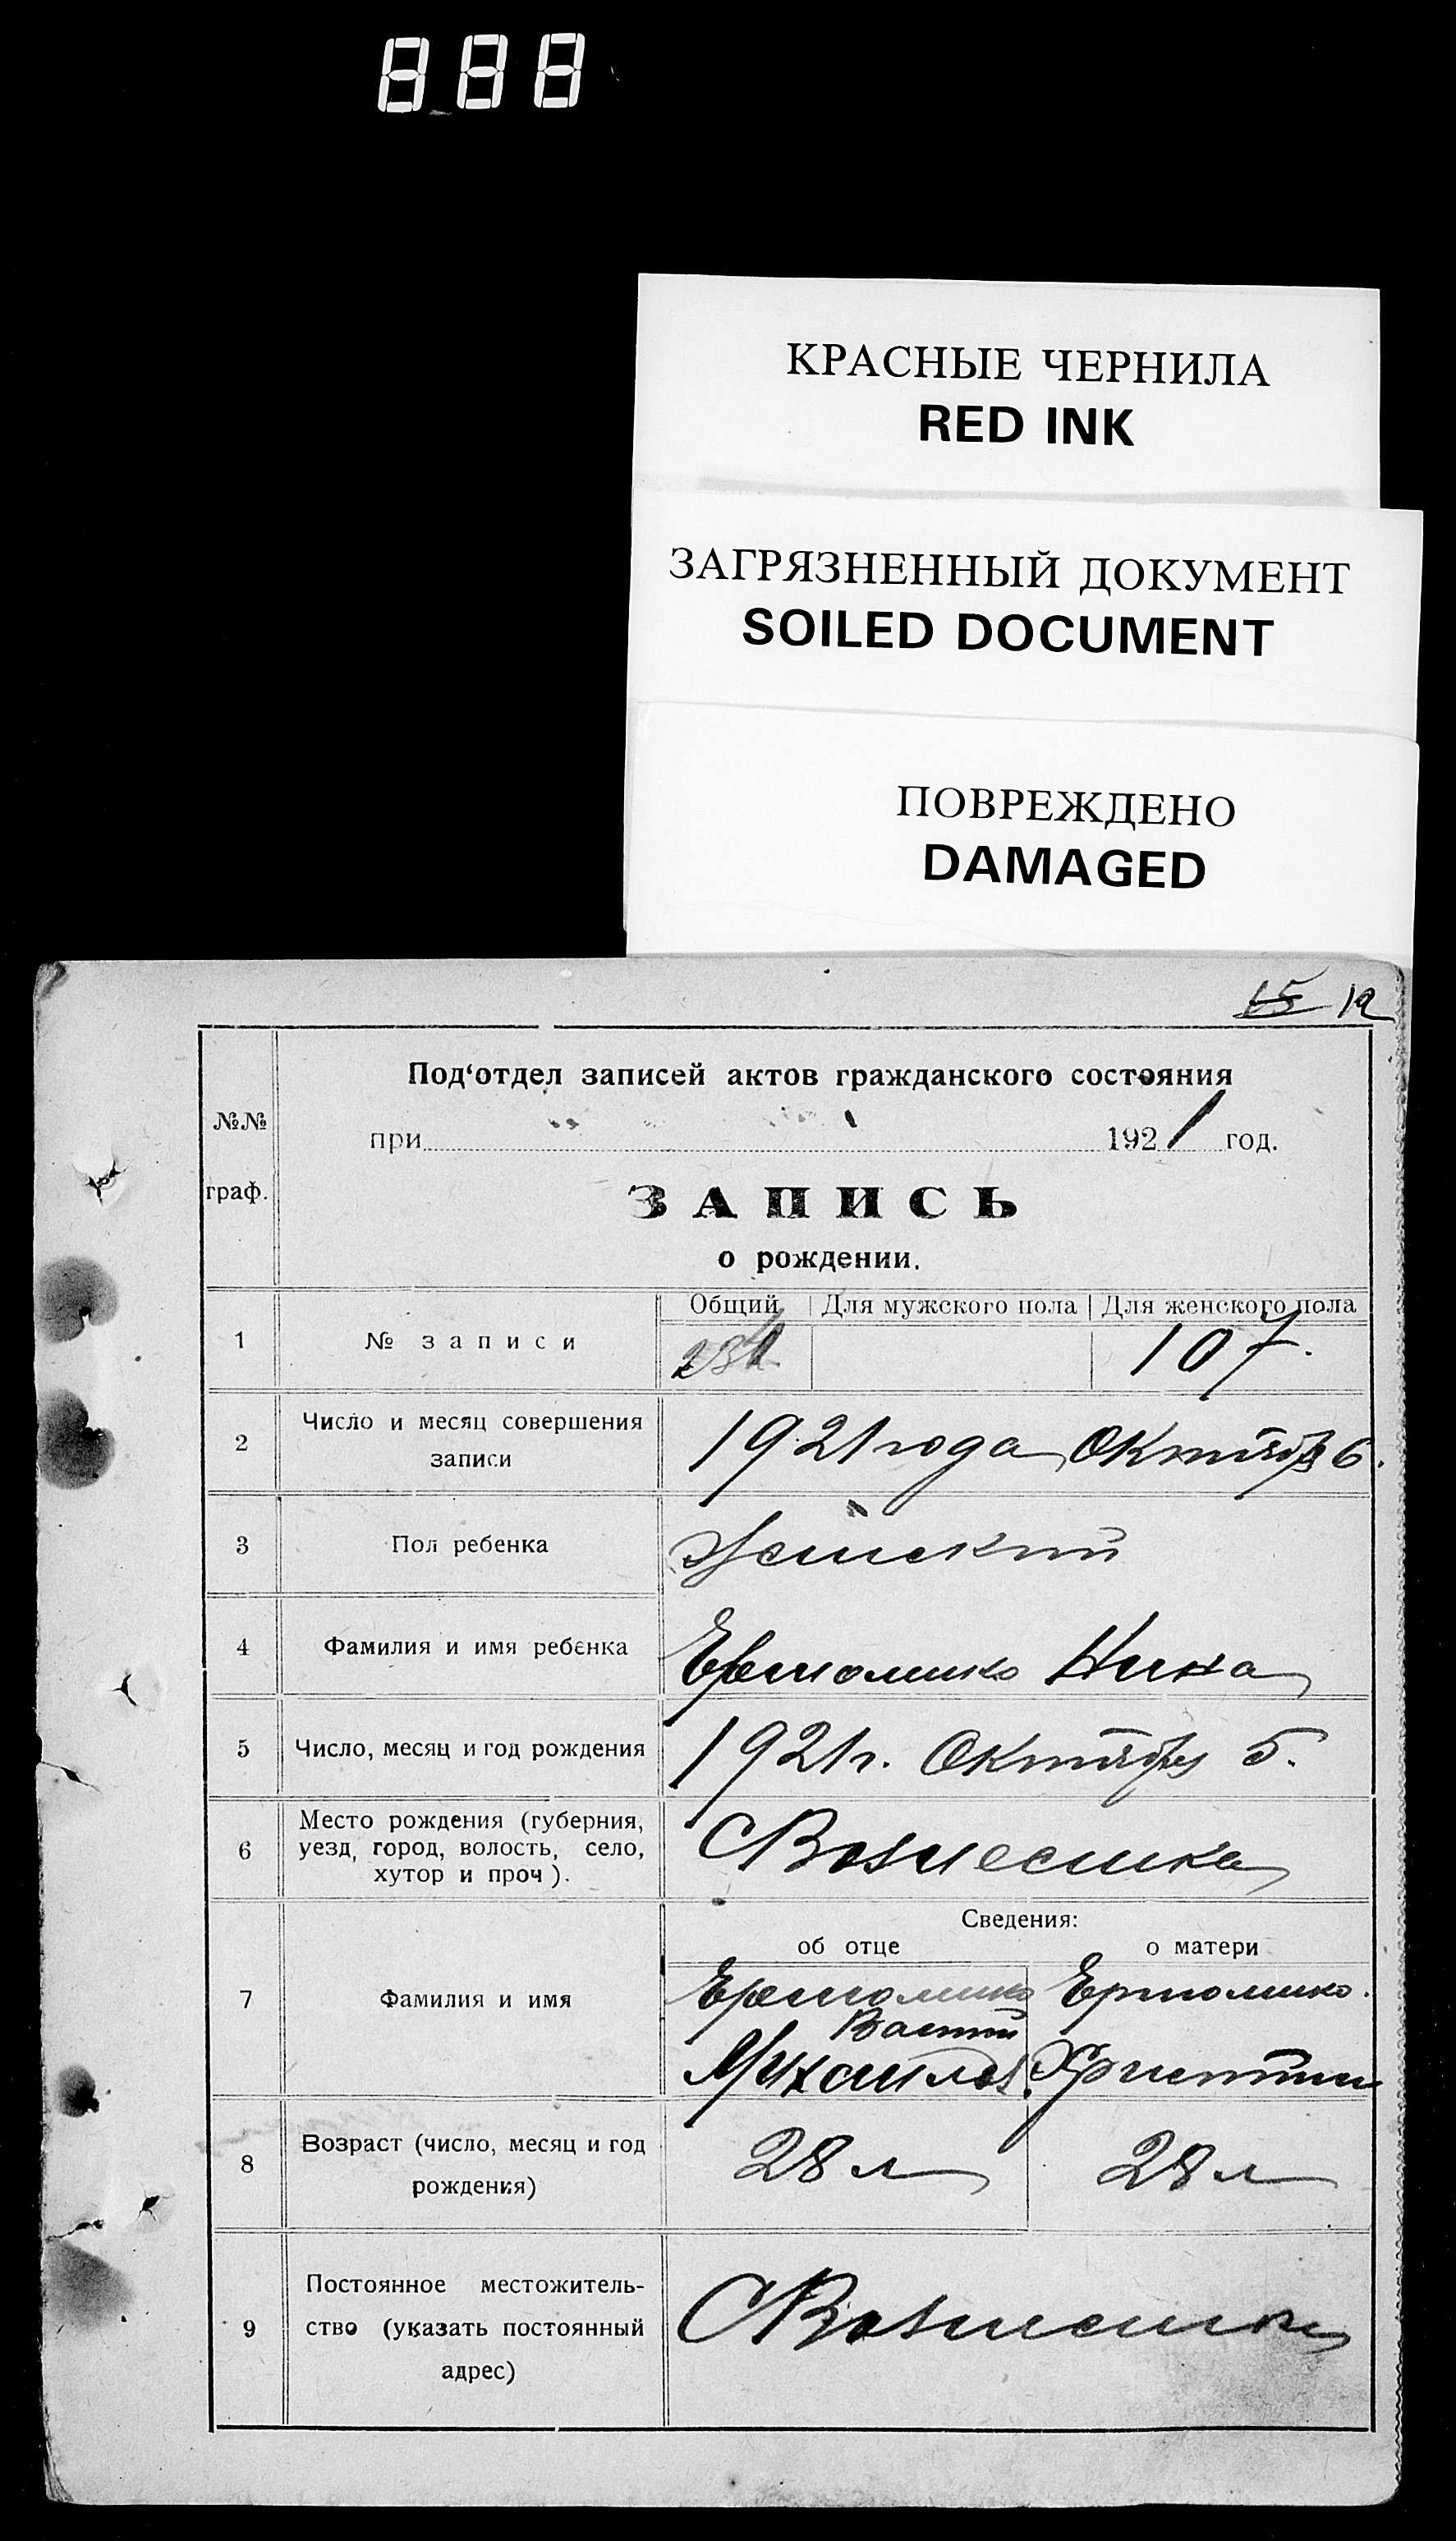 888
КРАСНЫЕ ЧЕРНИЛА
RED INK
ЗАГРЯЗНЕННЫЙ ДОКУМЕНТ
SOILED DOCUMENT
ПОВРЕЖДЕНО
DAMAGED
15 12
Под‘отдел записей актов гражданского состояния
№№
при 1921 год.
граф.
ЗАПИСЬ
о рождении.
Общий Для мужского пола Для женского пола
1 № записи 107.
Число и месяц совершения
2 1921 года Октября 6.
записи
3 Пол ребенка Женский
4 Фамилия и имя ребенка Нина
5 Число, месяц и год рождения 1921 г. Октября 5.
Место рождения (губерния,
6 уезд, город, волость, село, С Вознесенка
хутор и проч).
Сведения:
об отце о матери
7 Фамилия и имя
Возраст (число, месяц и год
8 28 л 28 л
рождения)
Постоянное местожитель-
9 ство (указать постоянный С Вознесенка
адрес)